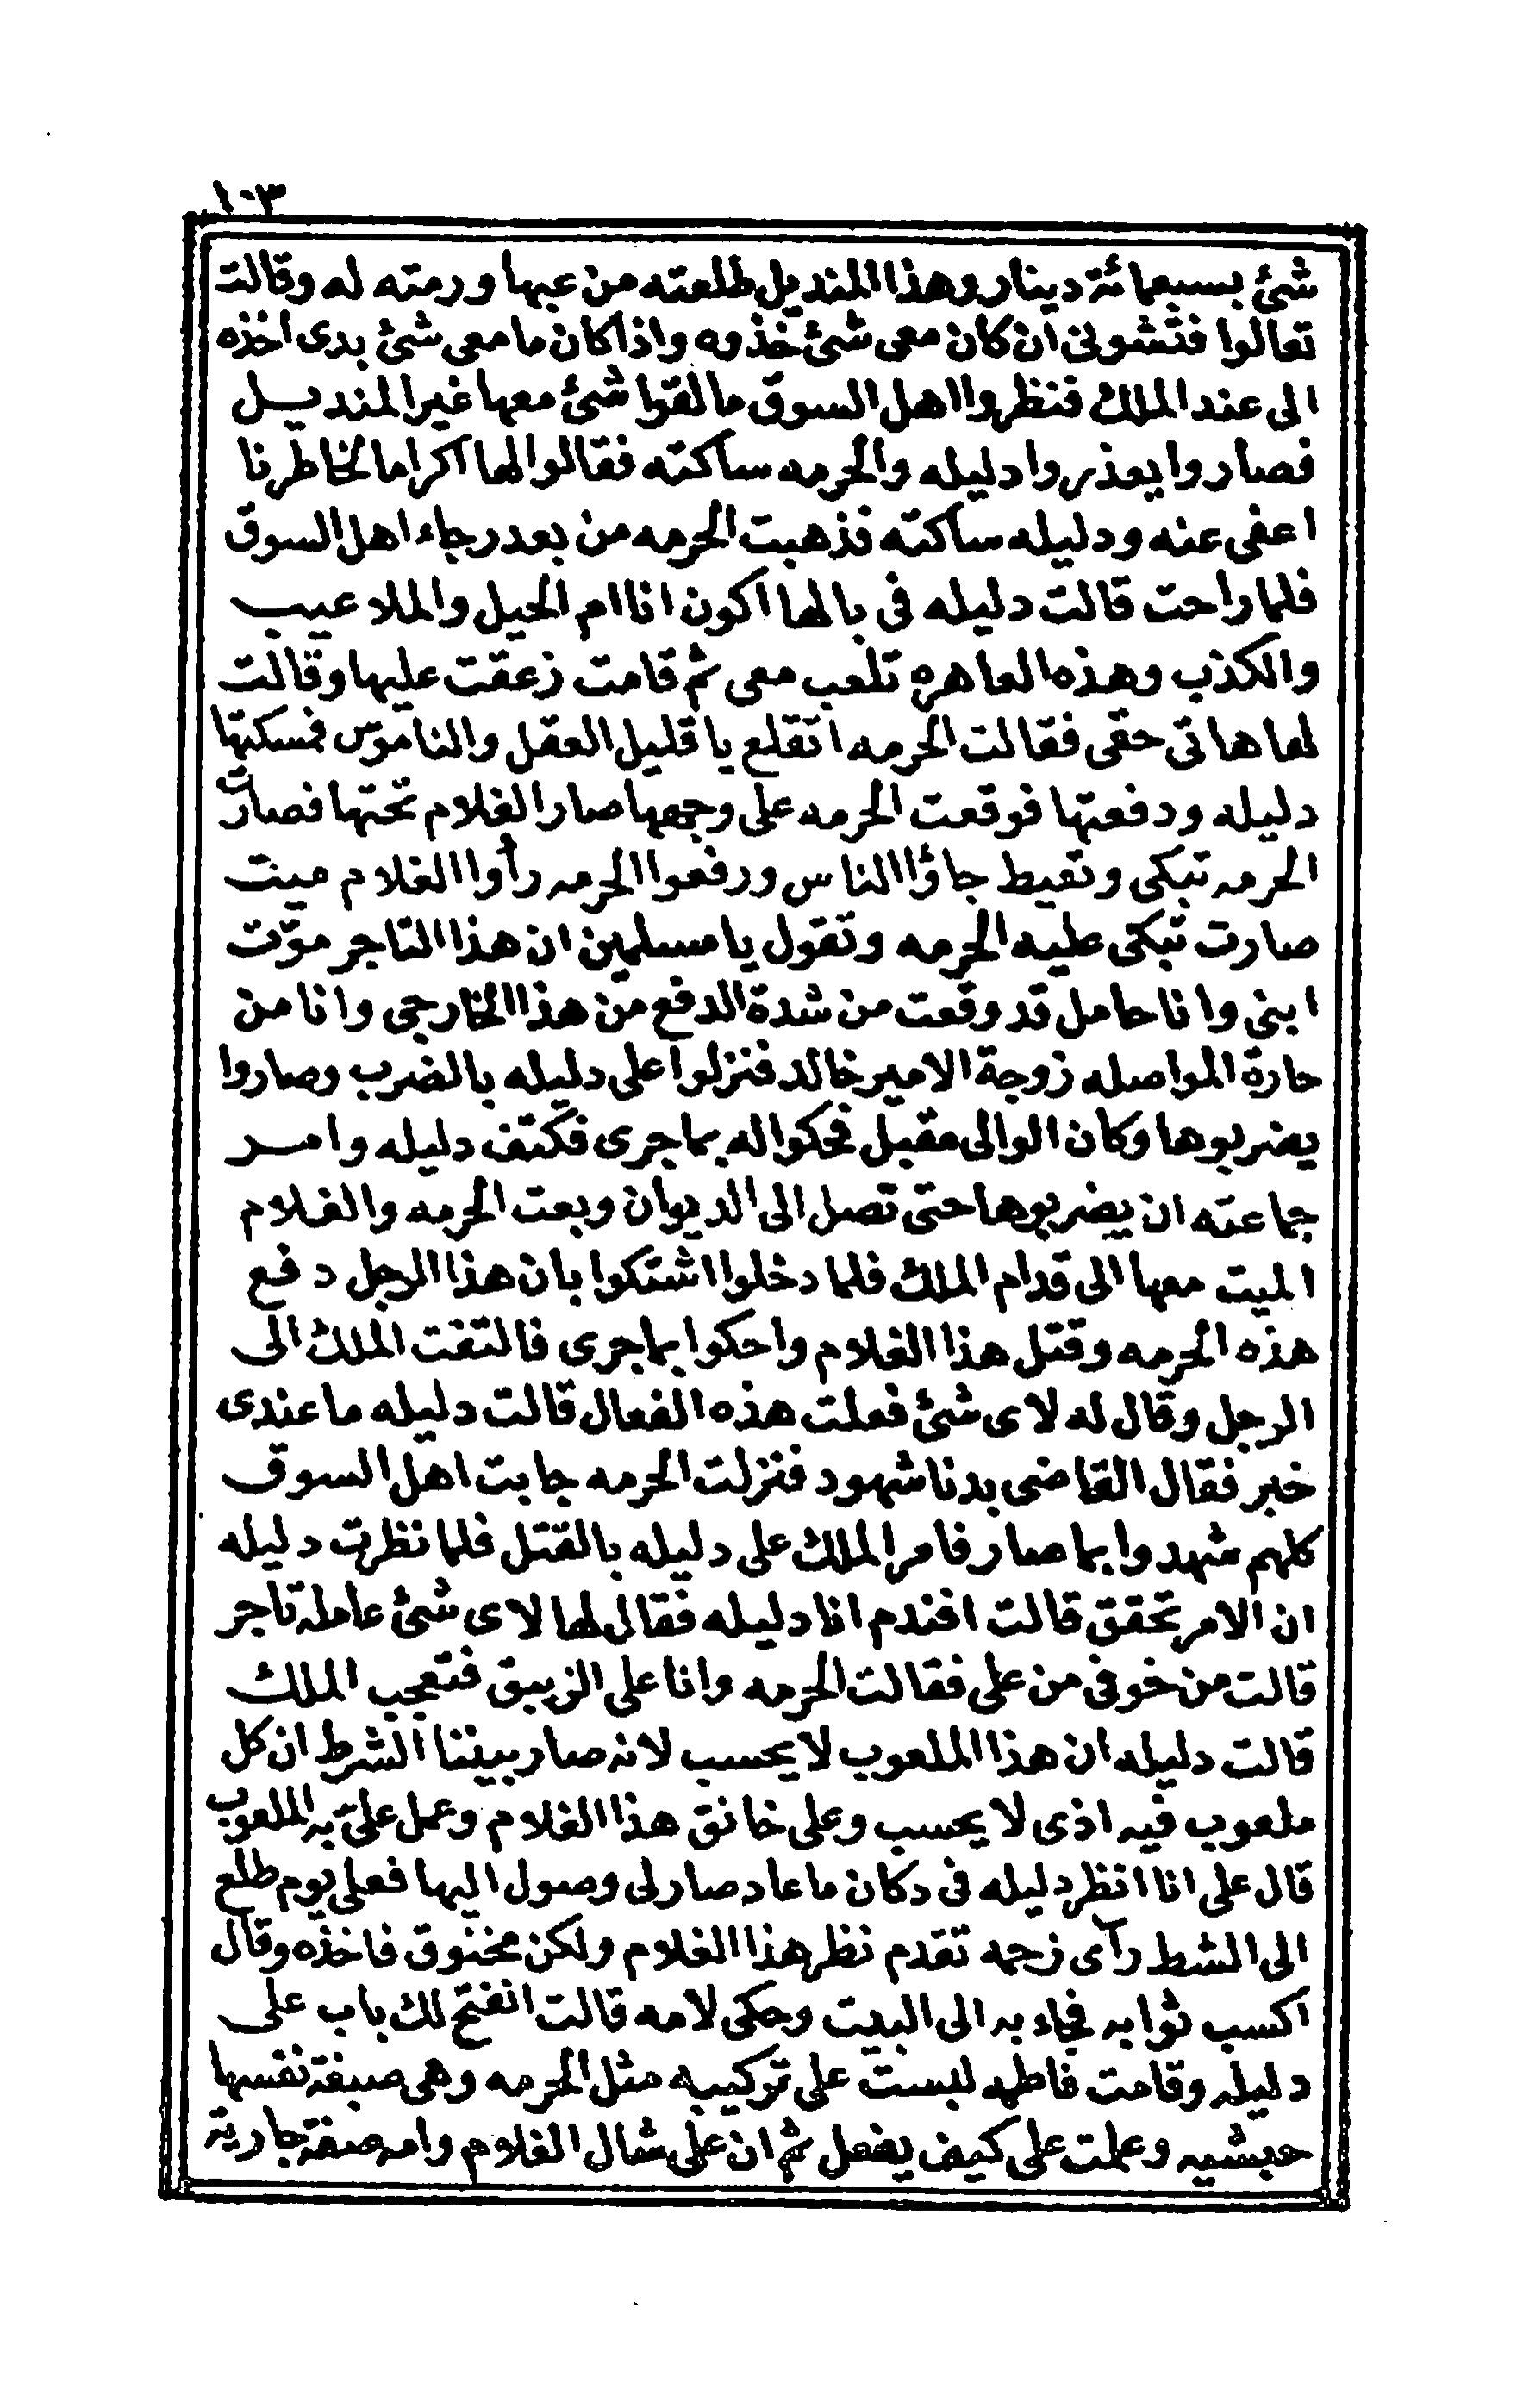 ١٠٣
شئ بسبعمائة دينار وهذا المنديل طلعته من عبها ورمته له وقالت
تعالوا فتشونى ان كان معى شئ خذوه واذا كان ما معى شئ بدى اخذه
الى عند الملك فنظروا اهل السوق ما لقوا شئ معها غير المنديل
فصاروا يعذروا دليله والحرمه ساكته فقالوا لها اكراما لخاطرنا
اعفى عنه ودليله ساكته فذهبت الحرمه من بعد رجاء اهل السوق
فلما راحت قالت دليله فى بالها اكون انا ام الحيل والملاعيب
والكذب وهذه العاهره تلعب معى ثم قامت زعقت عليها وقالت
لها هاتى حقى فقالت الحرمه اتقلع يا قليل العقل والناموس فمسكتها
دليله ودفعتها فوقعت الحرمه على وجهها صار الغلام تحتها فصارت
الحرمه تبكى وتعيط جاؤا الناس ورفعوا الحرمه رأوا الغلام ميت
صارت تبكى عليه الحرمه وتقول يا مسلمين ان هذا التاجر موّت
ابنى وانا حامل قد وقعت من شدة الدفع من هذا الخارجى وانا من
حارة المواصله زوجة الامير خالد فنزلوا على دليله بالضرب وصاروا
يضربوها وكان الوالى مقبل فحكوا له بما جرى فكتف دليله وامر
جماعته ان يضربوها حتى تصل الى الديوان وبعت الحرمه والغلام
الميت معها الى قدام الملك فلما دخلوا اشتكوا بان هذا الرجل دفع
هذه الحرمه وقتل هذا الغلام واحكوا بما جرى فالتفت الملك الى
الرجل وقال له لاى شئ فعلت هذه الفعال قالت دليله ما عندى
خبر فقال القاضى بدنا شهود فنزلت الحرمه جابت اهل السوق
كلهم شهدوا بما صار فامر الملك على دليله بالقتل فلما نظرت دليله
ان الامر تحقق قالت افندم انا دليله فقال لها لاى شئ عامله تاجر
قالت من خوفى من على فقالت الحرمه وانا على الزيبق فتعجب الملك
قالت دليله ان هذا الملعوب لا يحسب لانه صار بيننا الشرط ان كل
ملعوب فيه اذى لا يحسب وعلى خانق هذا الغلام وعمل علىّ به الملعوب
قال على انا انظر دليله فى دكان ما عاد صار لى وصول اليها فعلى يوم طلع
الى الشط رآى زحمه تقدم نظر هذا الغلام ولكن مخنوق فاخذه وقال
اكسب ثوابه فجاء به الى البيت وحكى لامه قالت انفتح لك باب على
دليله وقامت فاطمه لبست على تركيبه مثل الحرمه وهى صبغة نفسها
حبشيه وعلمت على كيف يفعل ثم ان على شال الغلام وامه صفة جارية